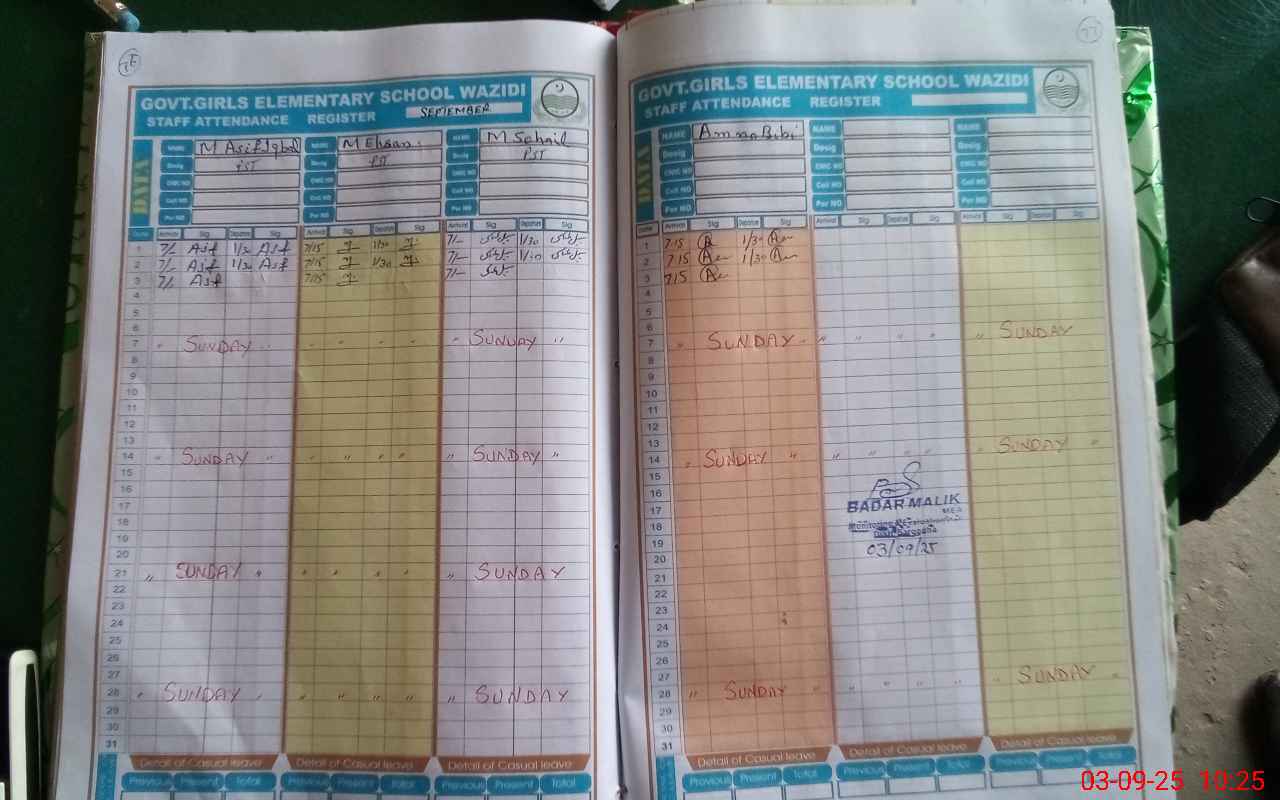 GOVT.GIRLS ELEMENTARY SCHOOL WAZIDI
STAFF ATTENDANCE REGISTER SEPTEMBER
DATA
NAME M Asif Iqbal NAME M Ehsan NAME M Sohail
Desig PST Desig PST Desig PST
CNIC NO CNIC NO CNIC NO
Cell NO Cell NO Cell NO
Per NO Per NO Per NO
Date Arrival Sig Depture Sig Arrival Sig Depture Sig Arrival Sig Depture Sig
1 7/- Asif 1/30 Asif 7/15 1/30 7/- 1/30
2 7/- Asif 1/30 Asif 7/15 1/30 7/- 1/30
3 7/- Asif 7/15 7/-
4
5
6
7 " SUNDAY " " " " " " SUNDAY "
8
9
10
11
12
13
14 " SUNDAY " " " " " " SUNDAY "
15
16
17
18
19
20
21 " SUNDAY " " " " " " SUNDAY
22
23
24
25
26
27
28 " SUNDAY " " " " " " SUNDAY
29
30
31
Detail of Casual leave Detail of Casual leave Detail of Casual leave
Previous Present Total Previous Present Total Previous Present Total
GOVT.GIRLS ELEMENTARY SCHOOL WAZIDI
STAFF ATTENDANCE REGISTER
DATA
NAME Amna Bibi NAME NAME
Desig Desig Desig
CNIC NO CNIC NO CNIC NO
Cell NO Cell NO Cell NO
Per NO Per NO Per NO
Date Arrival Sig Depture Sig Arrival Sig Depture Sig Arrival Sig Depture Sig
1 7/15 1/30
2 7/15 1/30
3 7/15
4
5
6
7 " SUNDAY " " " " " " SUNDAY
8
9
10
11
12
13
14 " SUNDAY " " " " " " SUNDAY "
15
16
17
18
19
20
21
22
23
24
25
26
27
28 " SUNDAY " " " " " " SUNDAY "
29
30
31
BADAR MALIK
MEA
03/09/25
Detail of Casual leave Detail of Casual leave Detail of Casual leave
Previous Present Total Previous Present Total Previous Present Total
03-09-25 10:25